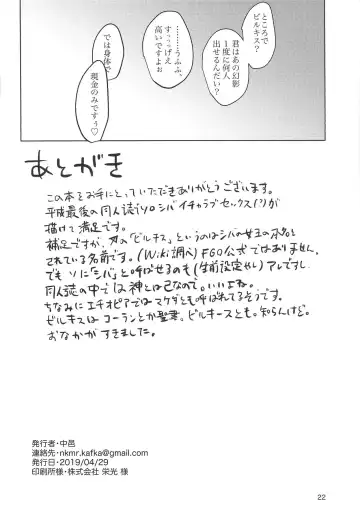 ところで
ビルキス？
君はあの幻影
１度に何人
出せるんだい？
………うふふ、
すぅっごげえ
高いですよぉ
では身体で
現金のみですぅ♡
あとがき
この本をお手にとっていただきありがとうございます。
平成最後の同人誌でソロシバイチャラブセックス(?)が
描けて満足です。
補足ですが、刃の「ビルキス」というのはシバの女王の本名と
されている名前です。(Wiki調べ)FGO公式ではありません。
でもソロに「シバ」と呼ばせるのも(生前設定やし)アレですし
同人誌の中では神と己なので。いいよね。
ちなみにエチオピアではマケダとも呼ばれてるそうです。
ビルキスはコーランとか聖書。ビルキースとも。知らんけど。
おなかがすきました。
発行者・中邑
連絡先・nkmr.kafka@gmail.com
発行日・2019/04/29
印刷所様・株式会社 栄光 様
22